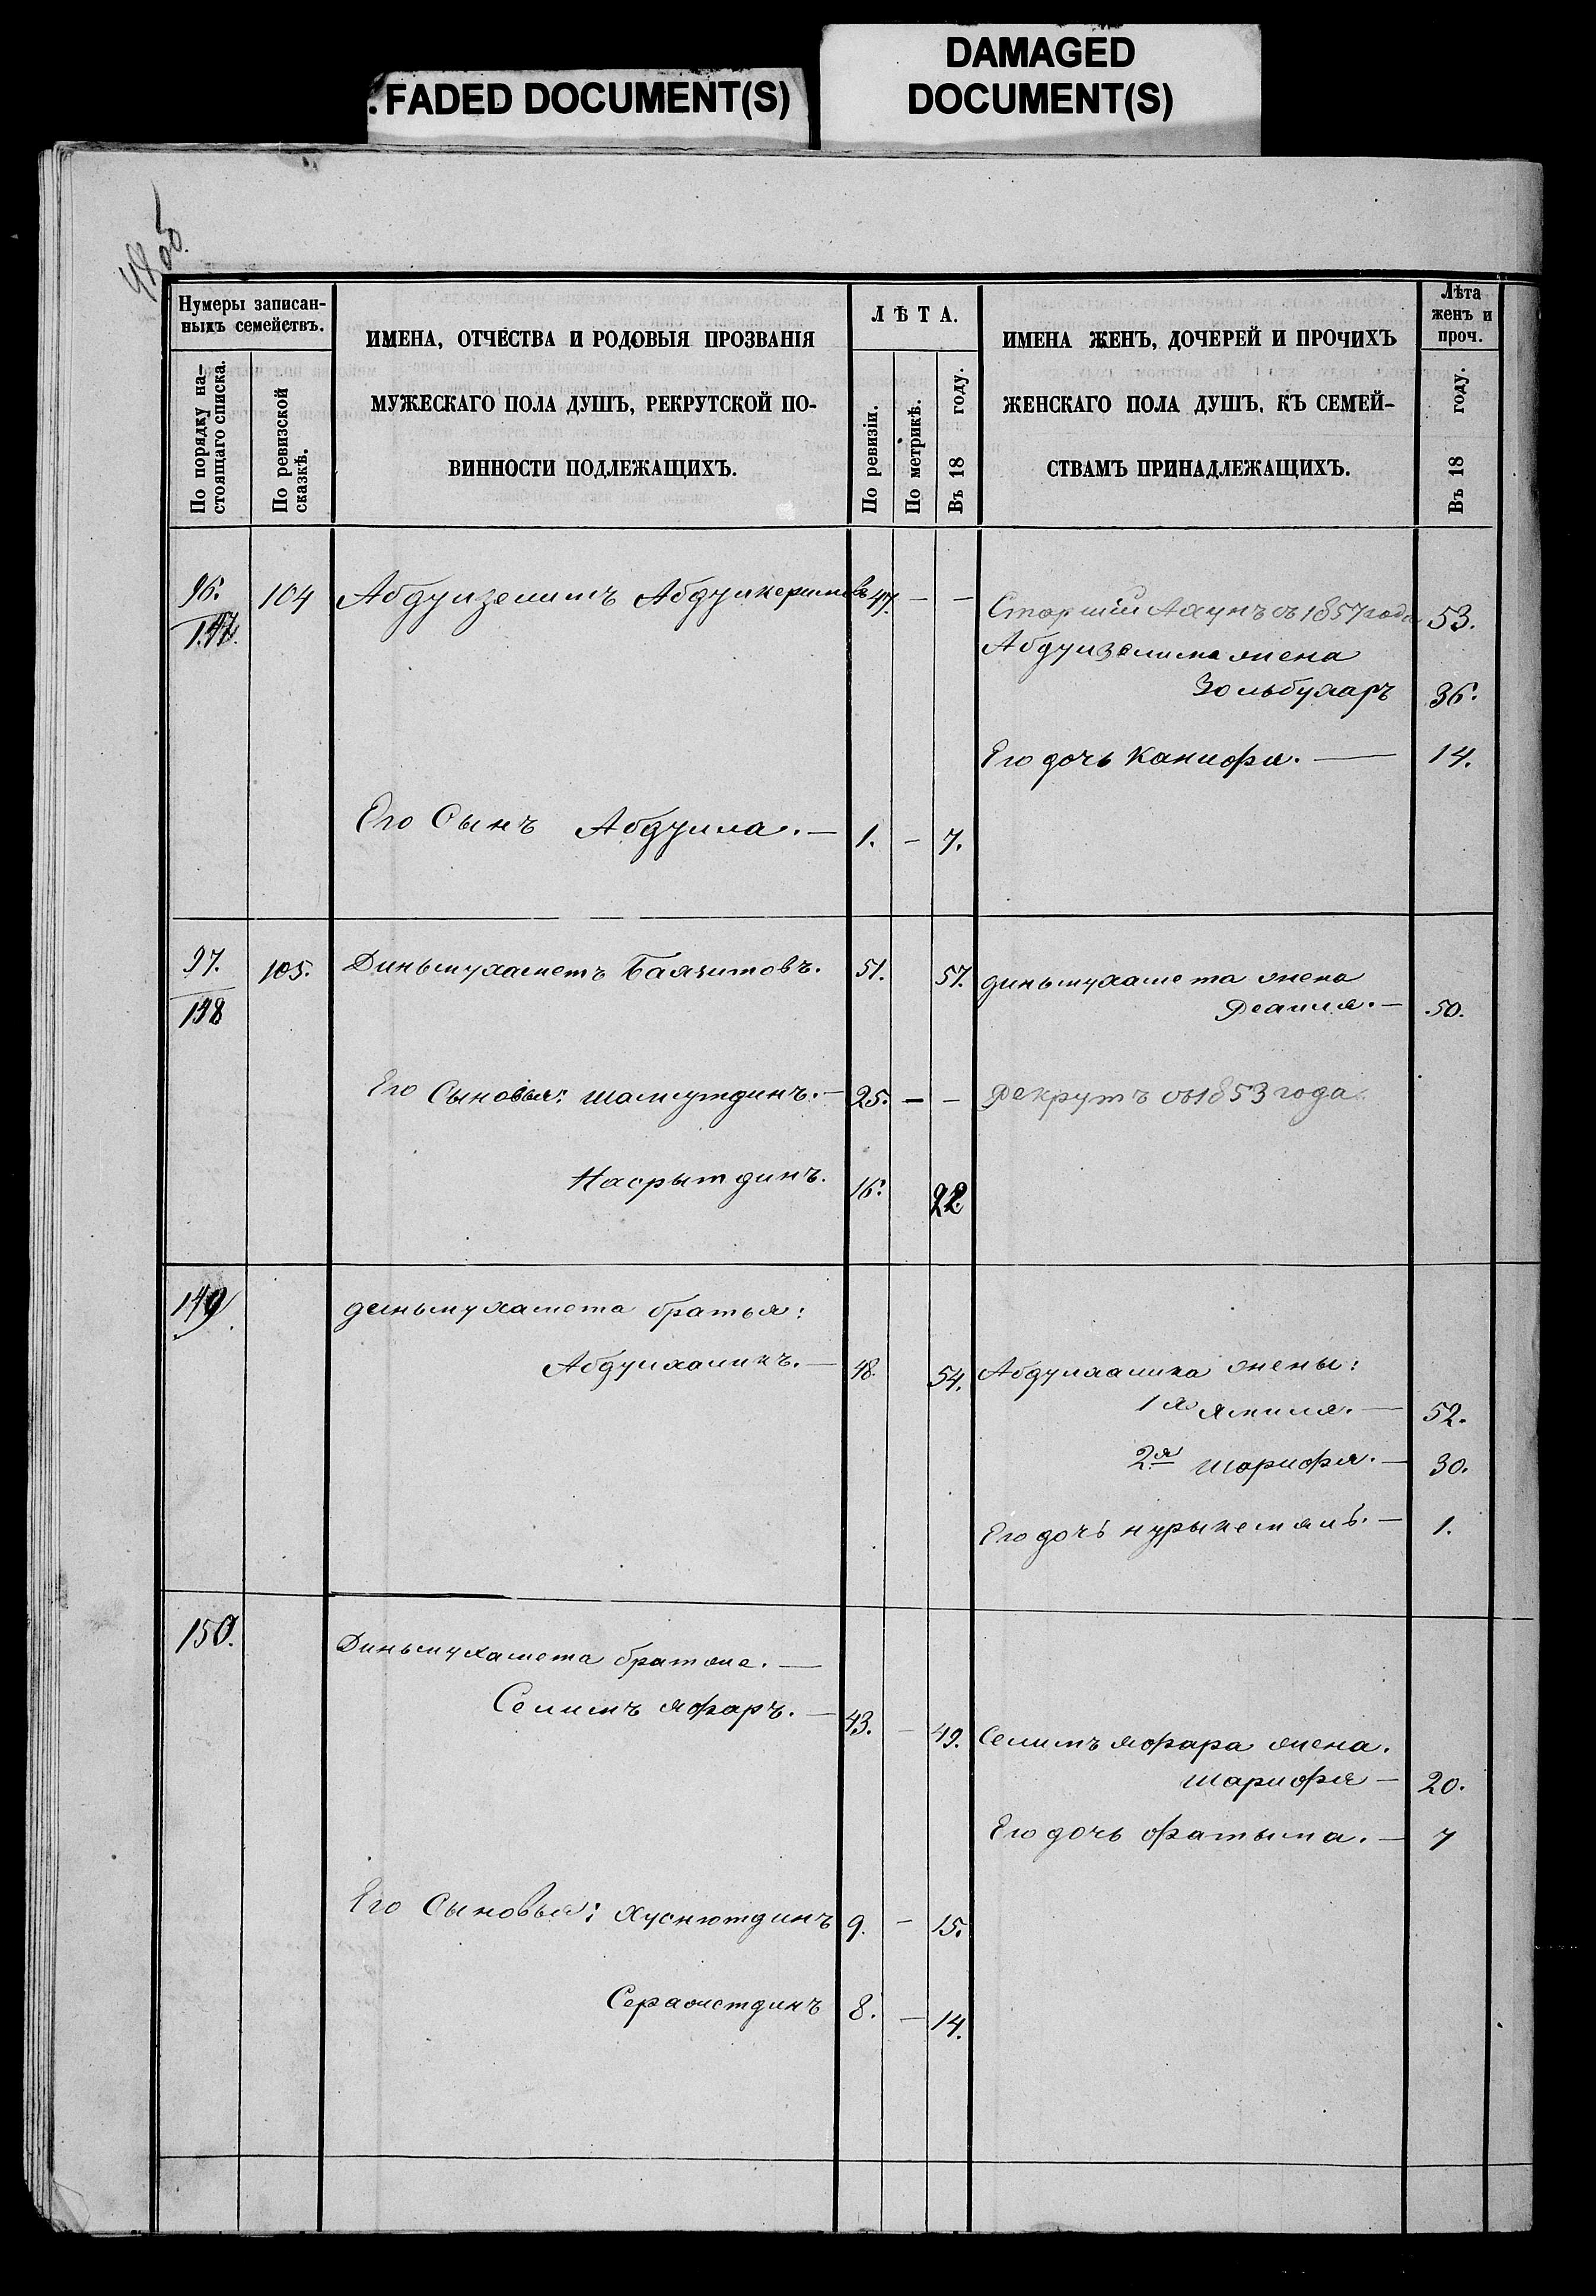 FADED DOCUMENT(S)
DAMAGED
DOCUMENT(S)
Нумеры записан-
ныхъ семействъ.
По порядку на-
стоящаго списка.
По ревизской
сказкѣ.
ИМЕНА, ОТЧЕСТВА И РОДОВЫЯ ПРОЗВАНІЯ
МУЖЕСКАГО ПОЛА ДУШЪ, РЕКРУТСКОЙ ПО-
ВИННОСТИ ПОДЛЕЖАЩИХЪ.
ЛѢТА.
По ревизіи.
По метрикѣ.
Въ 18 году.
ИМЕНА ЖЕНЪ, ДОЧЕРЕЙ И ПРОЧИХЪ
ЖЕНСКАГО ПОЛА ДУШЪ, КЪ СЕМЕЙ-
СТВАМЪ ПРИНАДЛЕЖАЩИХЪ.
Лѣта
женъ и
проч.
Въ 18 году.
96. 104 Абдулзелилъ Абдулкеримовъ 47. — —
147.
Старшій Ахунъ съ 1857 года 53.
Абдулзелила жена
Зюльбухаръ 36.
Его дочь Канифа. — 14.
Его Сынъ Абдулла. — 1. — 7.
97. 105. Диньмухаметъ Баязитовъ. 51. 57. диньмухамета жена
148
— 50.
Его Сыновья: шамсутдинъ. — 25. — — Рекрутъ съ 1853 года.
Насрытдинъ. 16. 22
149 диньмухамета братья:
Абдулхаликъ. — 48. 54. Абдулхалика жены:
1я Ямиля. — 52.
2я шарифа. — 30.
Его дочь нурыкемаль. — 1.
150. Диньмухамета братья же. —
Селимъ яфаръ. — 43. — 49. Селимъ яфара жена.
шарифа — 20.
Его дочь фатыма. — 7
Его Сыновья: хуснютдинъ 9. — 15.
Серажетдинъ 8. — 14.